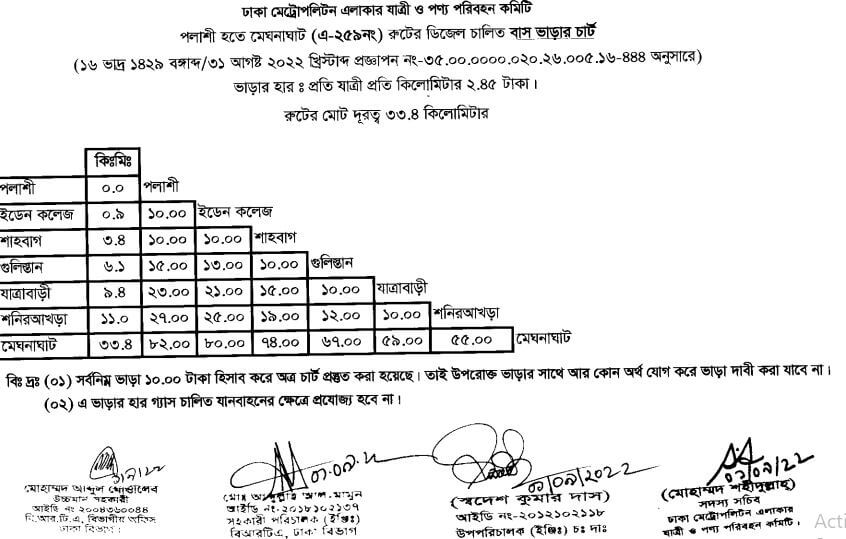 ঢাকা মেট্রোপলিটন এলাকার যাত্রী ও পণ্য পরিবহন কমিটি
পলাশী হতে মেঘনাঘাট (এ-২৫৯নং) রুটের ডিজেল চালিত বাস ভাড়ার চার্ট
(১৬ ভাদ্র ১৪২৯ বঙ্গাব্দ/৩১ আগষ্ট ২০২২ খ্রিস্টাব্দ প্রজ্ঞাপন নং-৩৫.০০.০০০০.০২০.২৬.০০৫.১৬-৪৪৪ অনুসারে)
ভাড়ার হার ঃ প্রতি যাত্রী প্রতি কিলোমিটার ২.৪৫ টাকা।
রুটের মোট দূরত্ব ৩৩.৪ কিলোমিটার
কিঃমিঃ
পলাশী ০.০ পলাশী
ইডেন কলেজ ০.৯ ১০.০০ ইডেন কলেজ
শাহবাগ ৩.৪ ১০.০০ ১০.০০ শাহবাগ
গুলিস্তান ৬.১ ১৫.০০ ১৩.০০ ১০.০০ গুলিস্তান
যাত্রাবাড়ী ৯.৪ ২৩.০০ ২১.০০ ১৫.০০ ১০.০০ যাত্রাবাড়ী
শনিরআখড়া ১১.০ ২৭.০০ ২৫.০০ ১৯.০০ ১২.০০ ১০.০০ শনিরআখড়া
মেঘনাঘাট ৩৩.৪ ৮২.০০ ৮০.০০ ৭৪.০০ ৬৭.০০ ৫৯.০০ ৫৫.০০ মেঘনাঘাট
বিঃ দ্রঃ (০১) সর্বনিম্ন ভাড়া ১০.০০ টাকা হিসাব করে অত্র চার্ট প্রস্তুত করা হয়েছে। তাই উপরোক্ত ভাড়ার সাথে আর কোন অর্থ যোগ করে ভাড়া দাবী করা যাবে না।
(০২) এ ভাড়ার হার গ্যাস চালিত যানবাহনের ক্ষেত্রে প্রযোজ্য হবে না।
০১/০৯/২০২২
মোহাম্মদ আব্দুল মোত্তালেব
উচ্চমান সহকারী
আইডি নং ২০০৪৩৬০০৪৪
বি.আর.টি.এ, বিভাগীয় অফিস
ঢাকা বিভাগ।
আইডি নং-২০১৮১০২১৩৭
সহকারী পরিচালক (ইঞ্জিঃ)
বিআরটিএ, ঢাকা বিভাগ
(স্বদেশ কুমার দাস)
আইডি নং-২০১২১০২১১৮
উপপরিচালক (ইঞ্জিঃ) চঃ দাঃ
(মোহাম্মদ শহীদুল্লাহ)
সদস্য সচিব
ঢাকা মেট্রোপলিটন এলাকার
যাত্রী ও পণ্য পরিবহন কমিটি।
Acti